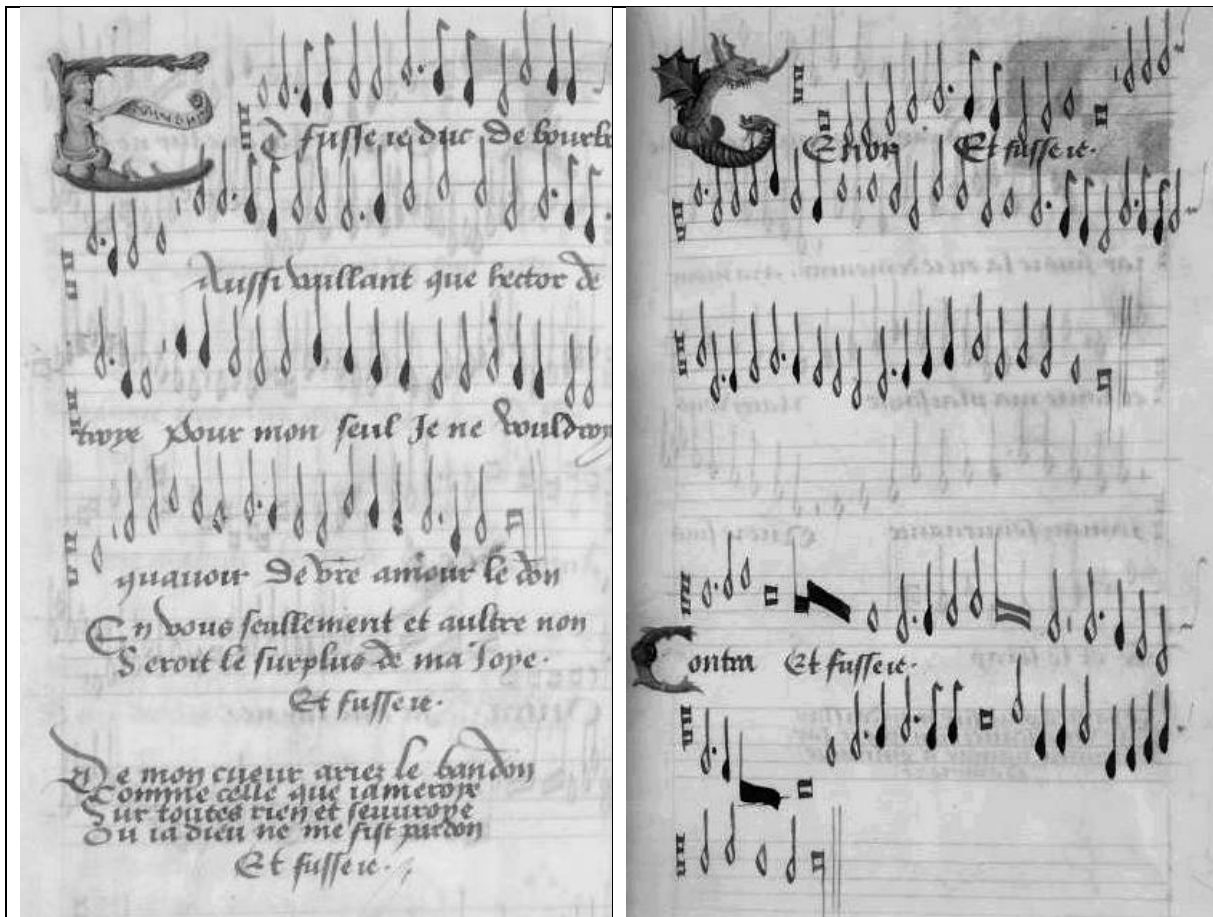 Et fusse ie duc de bourb
Aussi vaillant que hector de
troye pour mon seul Je ne vouldroy
quauoir de vre amour le don
En vous seullement et aultre non
Seroit le surplus de ma Joye.
Et fusse ie.
De mon cueur ariez le bandon
Comme celle que iameroye
Sur toutes rien et seuuroye
Ou ia dieu ne me fist pardon
Et fusse ie.
Tenor Et fusse ie.
Contra Et fusse ie.